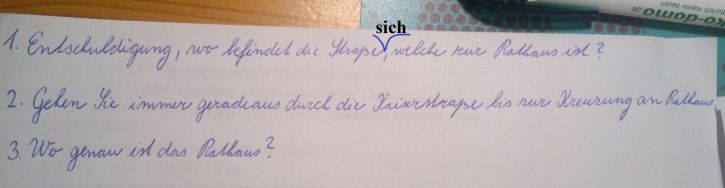 o-domo
sich
1. Entschuldigung, wo befindet die Straße, welche zur Rathaus ist?
2. Gehen Sie immer geradeaus durch die Kaiserstraße bis zur Kreuzung an Rathaus.
3. Wo genau ist das Rathaus?